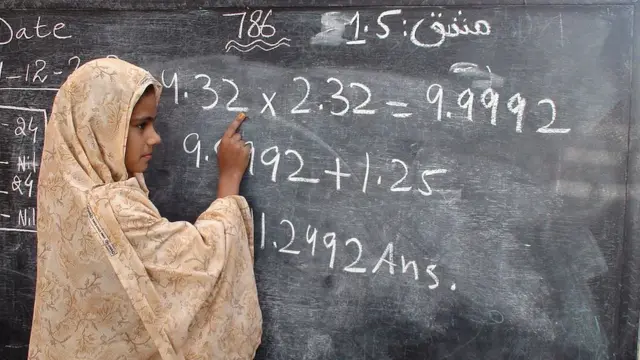 Date
786
مشق :1.5
1-12-2
24
- Nil
24
- Nil
4.32 x 2.32 = 9.9992
9.9992 + 1.25
1.2492 Ans.